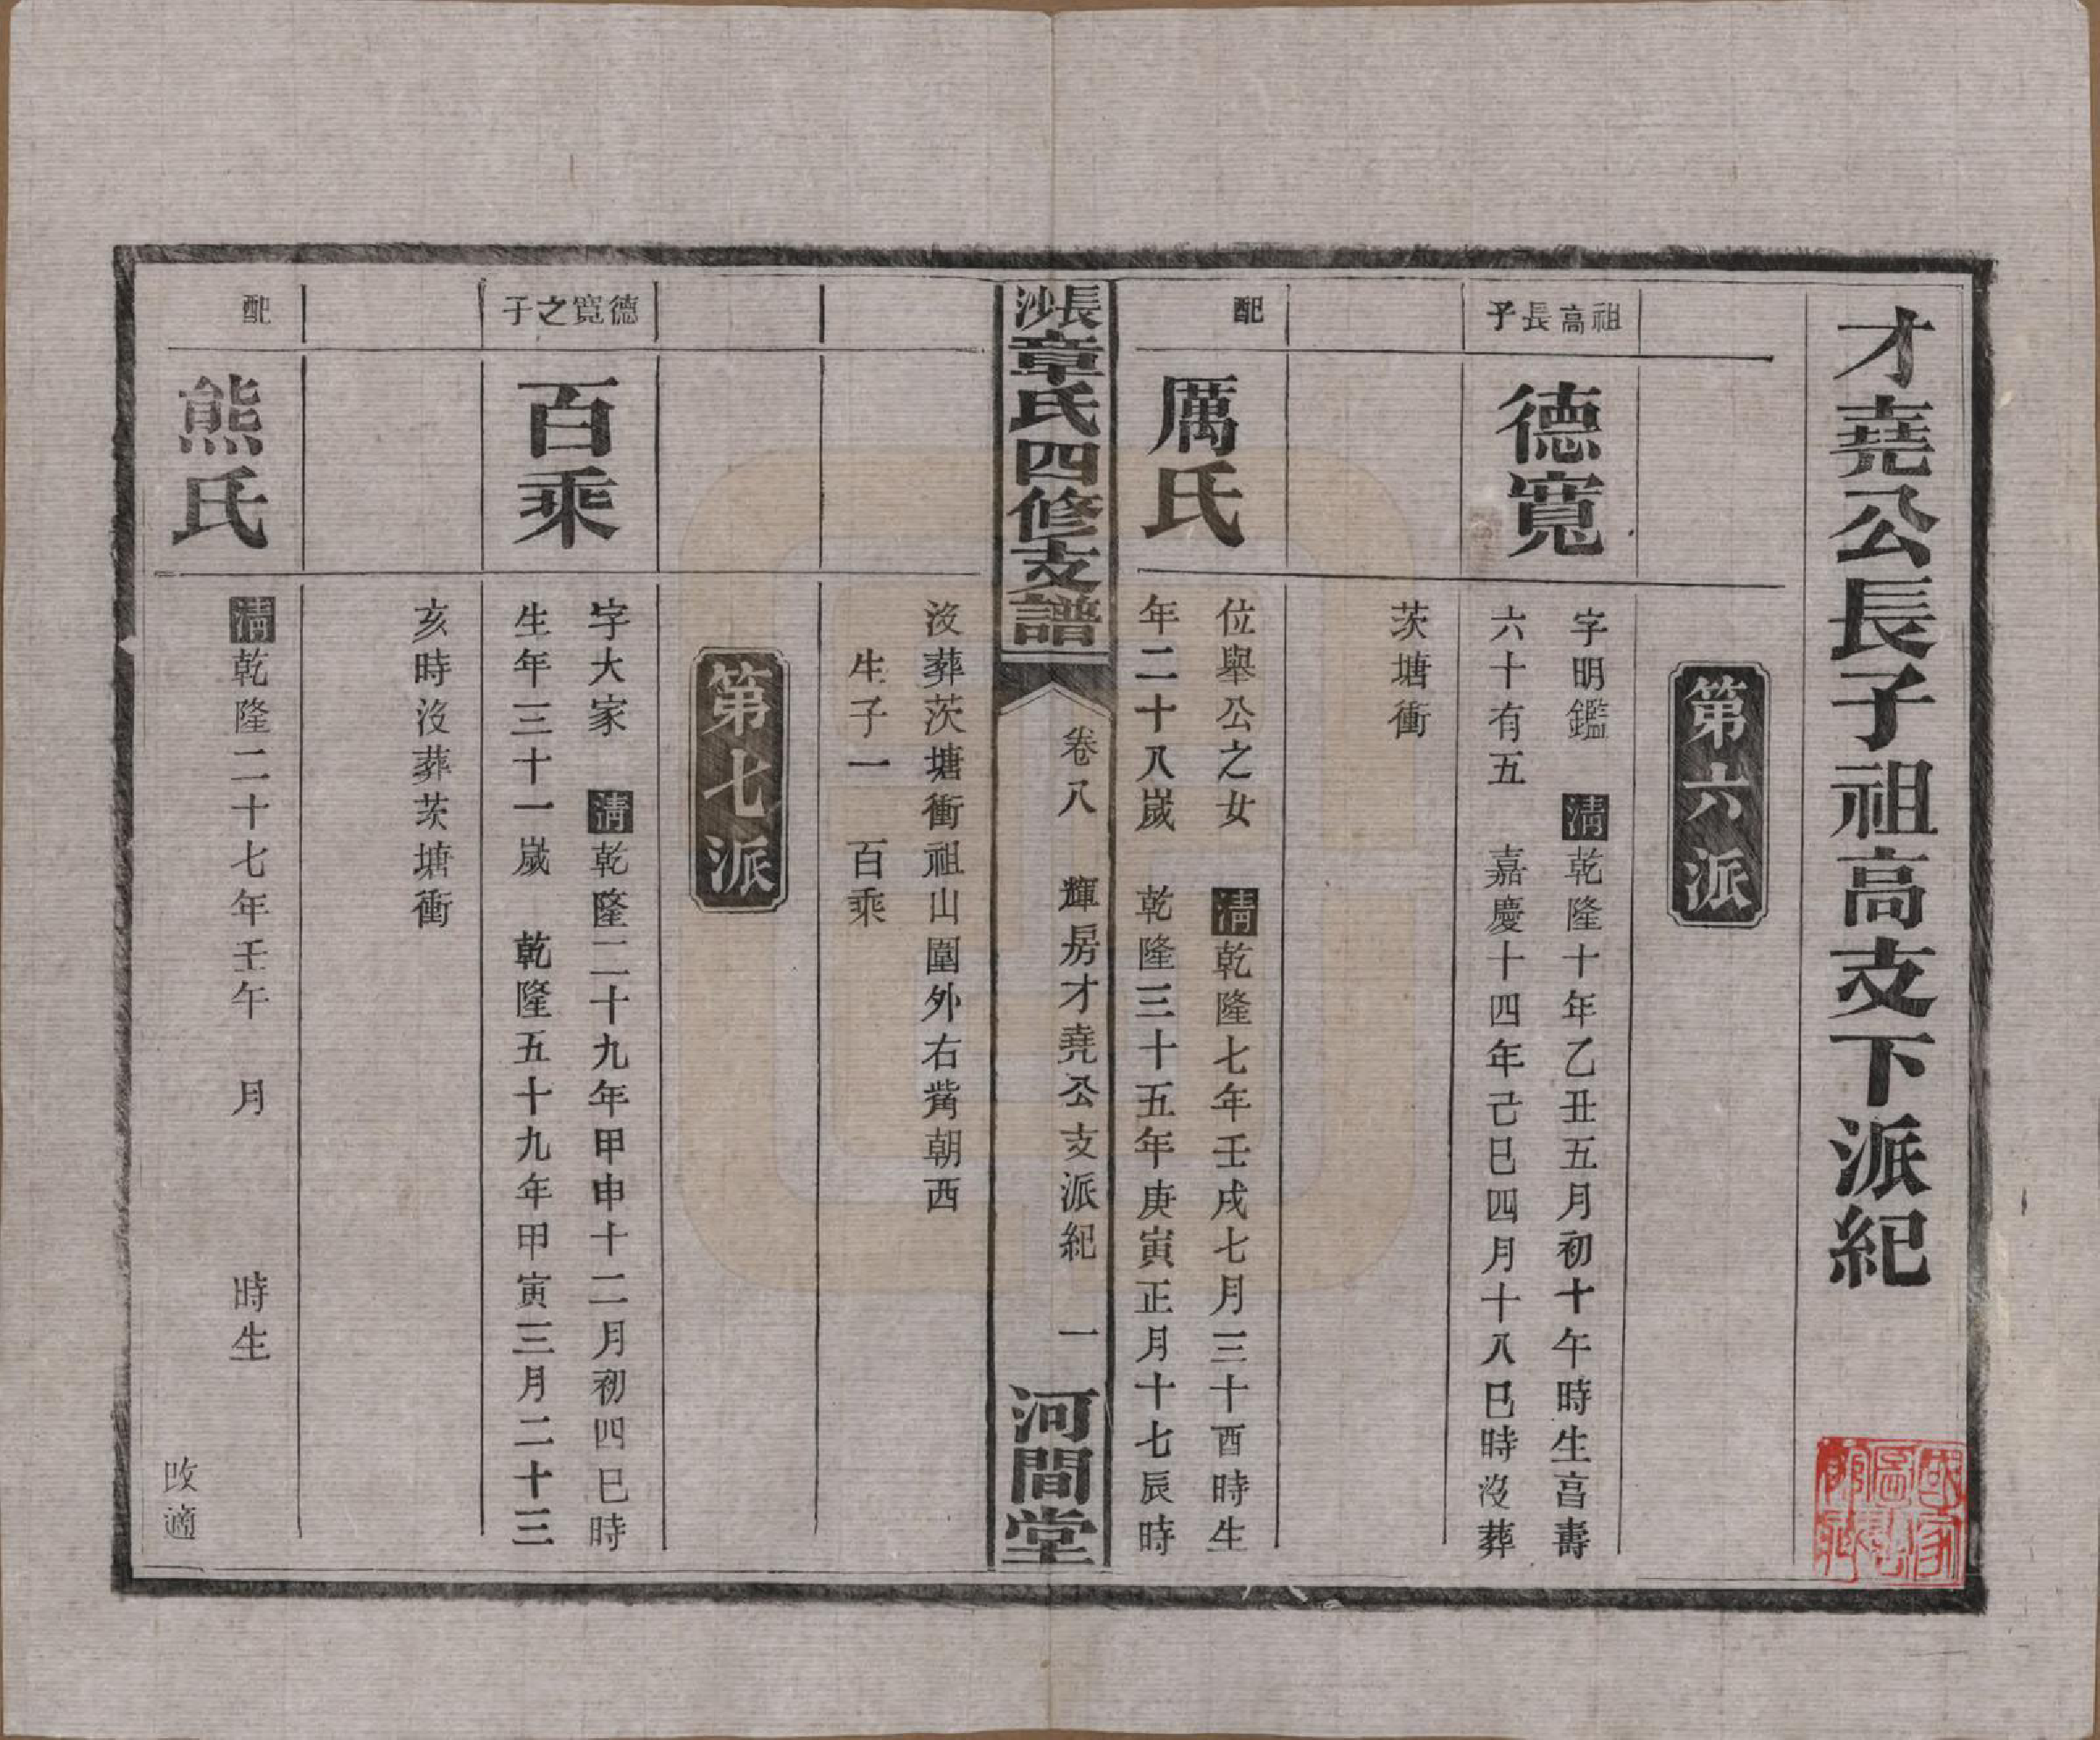 才堯公長子祖高支下派紀
第六派
祖高長子
德寬
字明鑑 清乾隆十年乙丑五月初十午時生亯壽
六十有五 嘉慶十四年己巳四月十八巳時沒葬
茨塘衝
配
厲氏
位舉公之女 清乾隆七年壬戌七月三十酉時生
年二十八歲 乾隆三十五年庚寅正月十七辰時
長沙章氏四修支譜
卷八 輝房才堯公支派紀 一
河間堂
沒葬茨塘衝祖山圍外右觜朝西
生子一 百乘
第七派
德寬之子
百乘
字大家 清乾隆二十九年甲申十二月初四巳時
生年三十一歲 乾隆五十九年甲寅三月二十三
亥時沒葬茨塘衝
配
熊氏
清乾隆二十七年壬午 月 時生
改適
國家圖書館藏